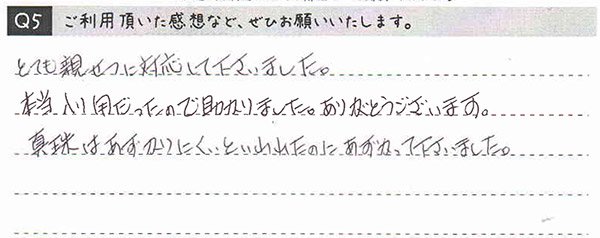 Q5 ご利用頂いた感想など、ぜひお願いいたします。
とても親せつに対応して下さいました。
本当入り用だったので助かりました。ありがとうございます。
真珠はあずかりにくいといわれたのにあずかって下さいました。